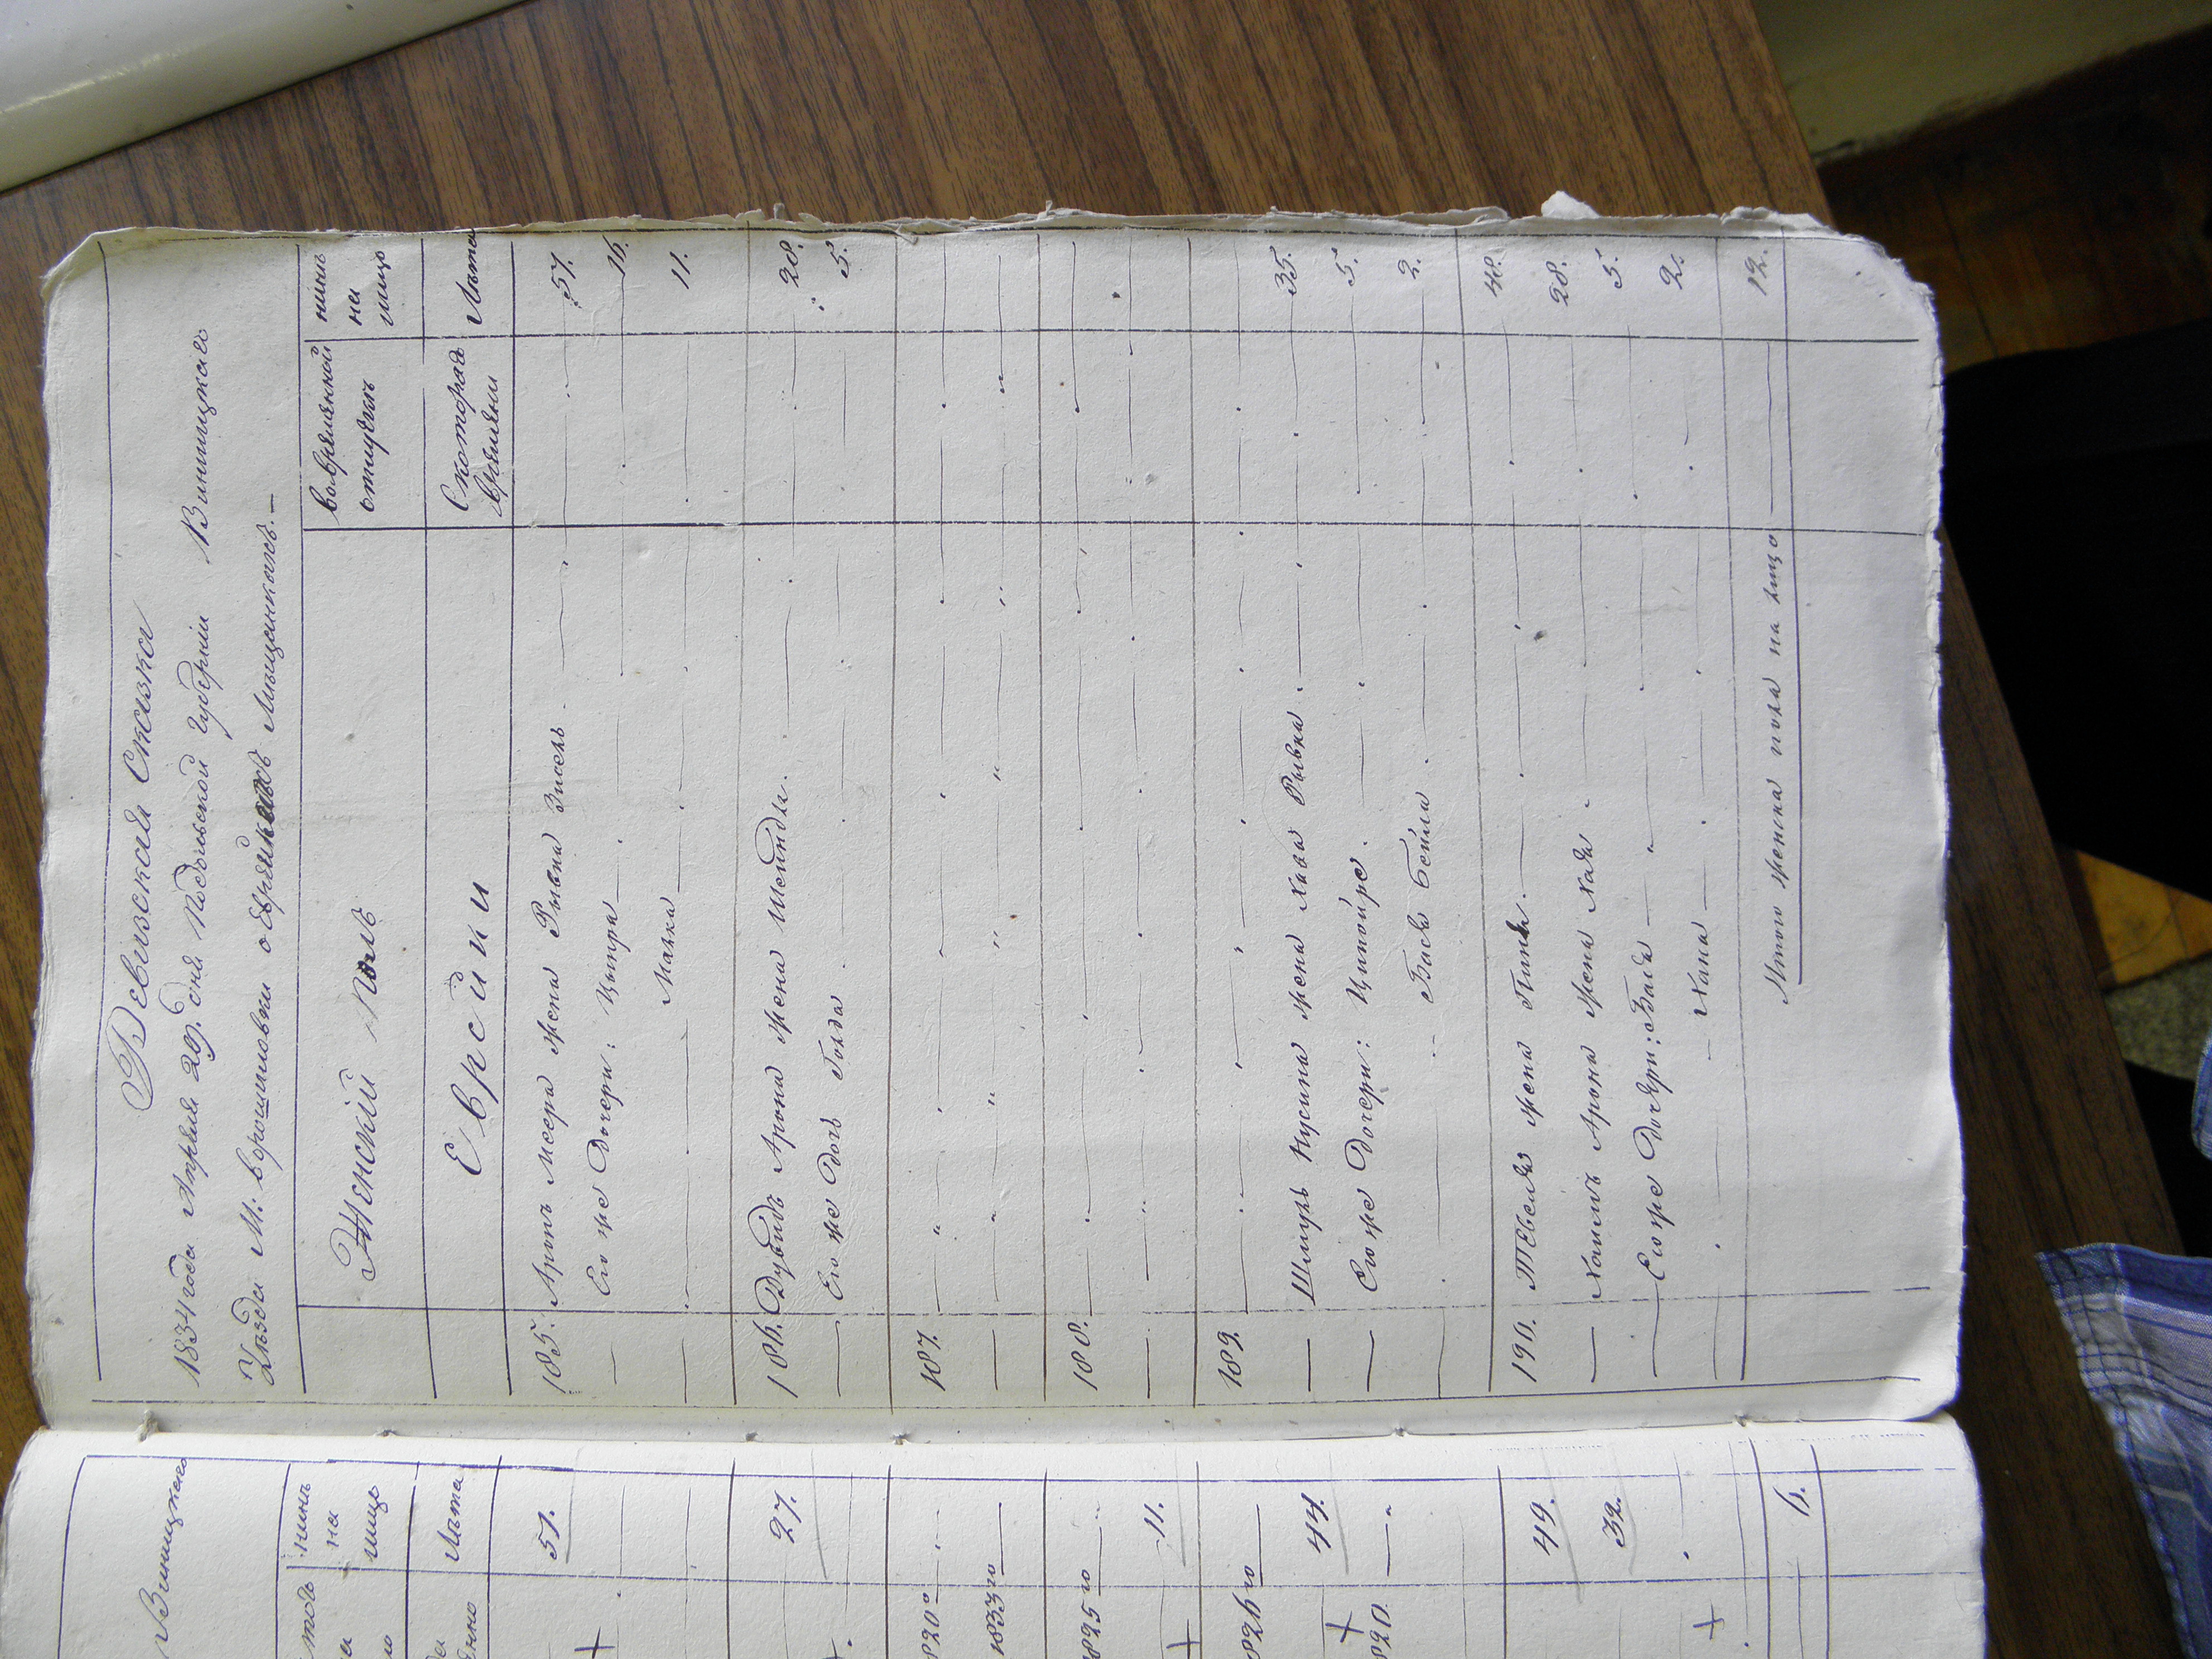 Ревизская Сказка
1834 года Апреля 29. дня Подольской Губернiи Винницкаго
Уѣзда М: Ворошиловки о Еврейкахъ Мѣщанкахъ.—
Женскiй Полъ
во временной отлучкѣ
нынѣ на лицо
Еврейки
Скотораго времени
Лѣта
185. Аронъ Меера жена Рывка Зисель 51.
— Его же Дочери: Цыпра 16.
— Малка 11.
186. Дувидъ Арона жена Шейндля. 28.
— Его же Дочь Голда 5.
187.
—
188.
—
189.
— Шмуль Нусина жена Хава Рывка 35.
— Его же Дочери: Ципойре. 5.
— Бася Бейла 2.
190. Тевеля жена Пиня. 48.
— Хаимъ Арона жена Хая. 28.
— Его же Дочери: Бася 5.
— Хана 2.
Итого женска пола на лицо 12.
Винницкаго
нынѣ
на
лицо
Лѣта
51.
27.
1833 го
1825 го
11.
44.
49.
32.
6.